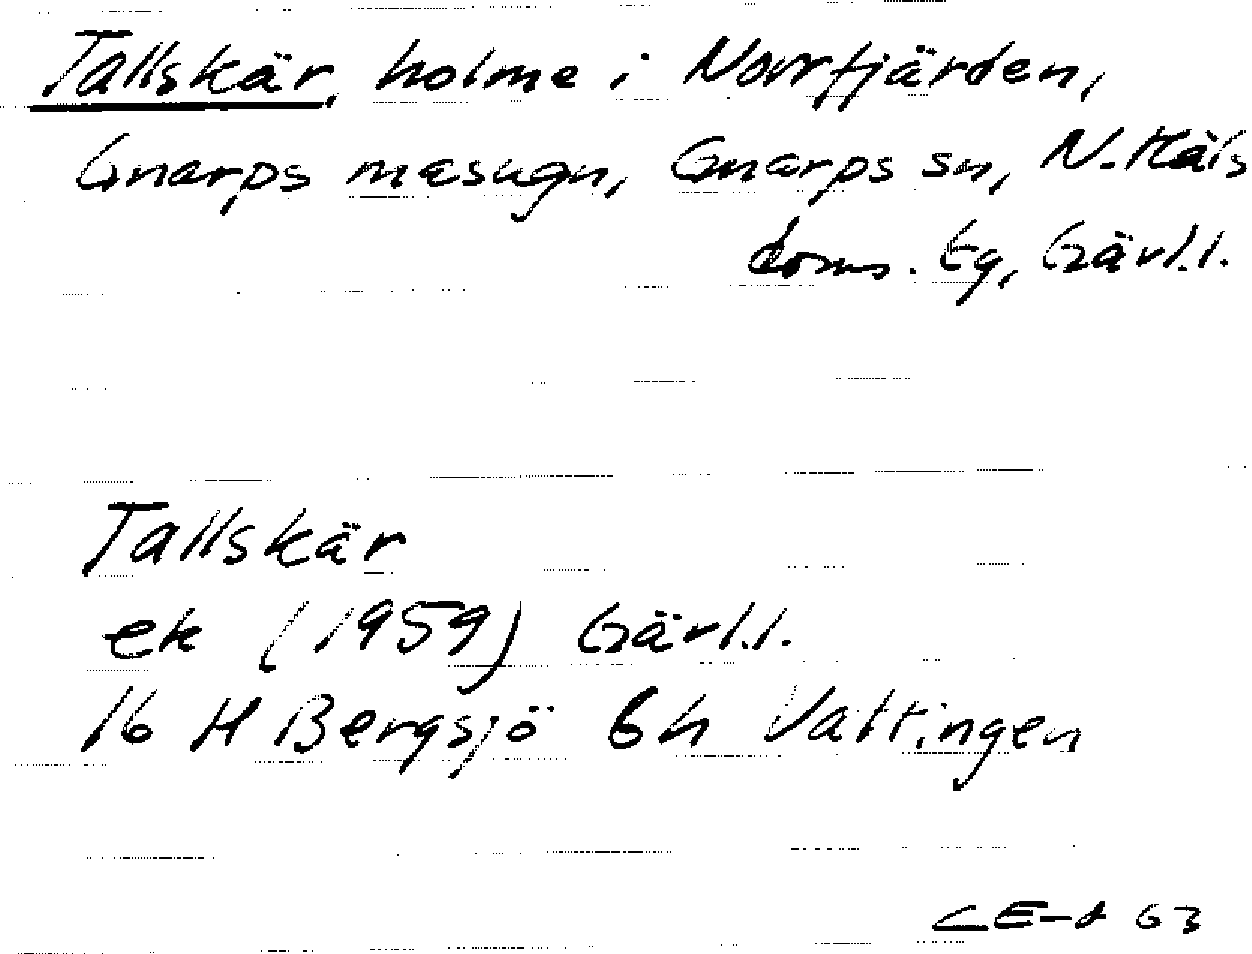 Tallskär, holme i Norrfjärden,
Gnarps masugn, Gnarps sn, N. Häls
doms. tg, Gävl.l.
Tallskär
ek (1959) Gävl.l.
16 H Bergsjö 6h Vattingen
CE-d 63